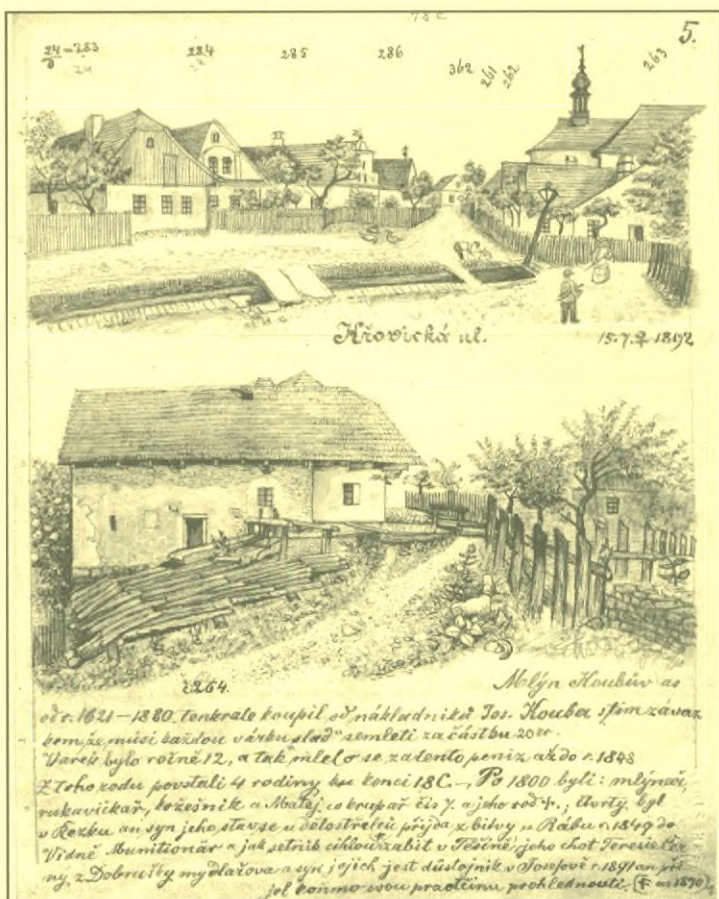 5.
283 284 285 286 362 261 262 263
Křovická ul. 15.7. 1892
č 264. Mlýn Koubův as
od r. 1621 – 1880. tenkrate koupil od nákladníků Jos. Kouba s tím závaz
kem, že musí každou várku slad" semleti za částku 20 kr.
Várek bylo ročně 12, a tak mlelo se za tento peníz až do r. 1848
Z toho rodu povstali 4 rodiny ku konci 18 C. – Po 1800 byli: mlynář,
rukavičkář, kožešník a Matěj co krupař čís 7. a jeho rod +.; čtvrtý byl
v Rozku an syn jeho stav se u dělostřelců přijda z bitvy u Rábu r. 1849 do
Vídně Munitionär a jak setník cihlou zabit v Těšíně, jeho choť Terezie
ny, z Dobrušky mydlářova a syn jejich jest důstojník v Josefově r. 1891 an při
jel koňmo svou prohlednouti.